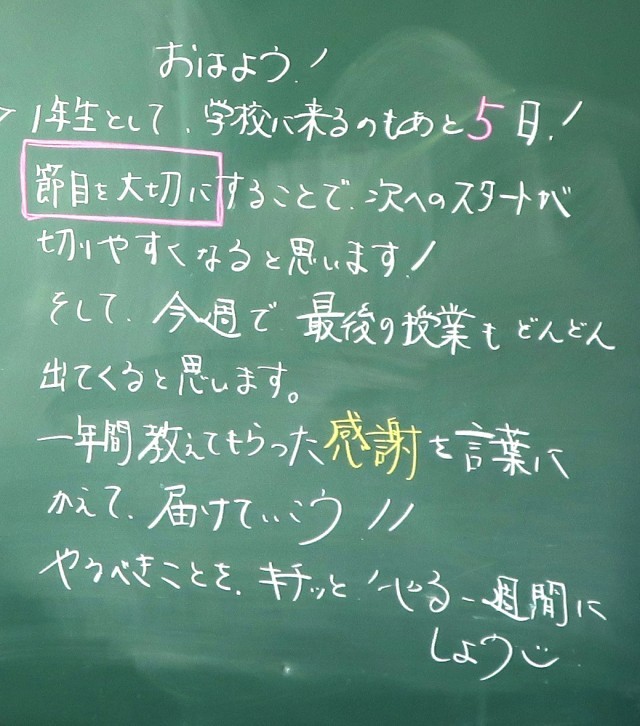 おはよう！
1年生として、学校に来るのもあと5日！
節目を大切にすることで、次へのスタートが
切りやすくなると思います！
そして、今週で最後の授業もどんどん
出てくると思います。
一年間教えてもらった感謝を言葉に
かえて、届けていこう！！
やるべきことを、キチッとやる一週間に
しょう